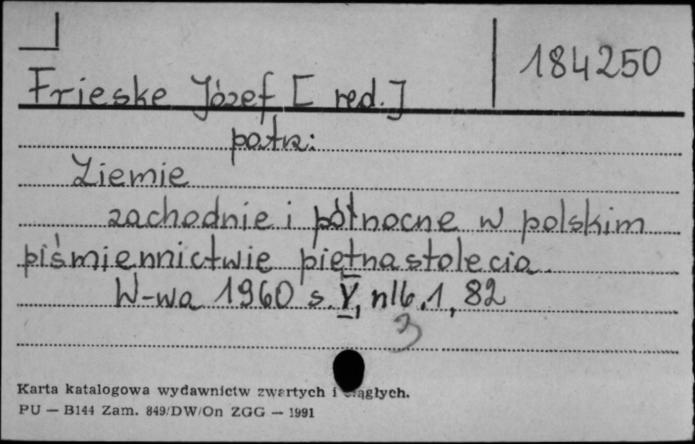 184250
Frieske Józef [ red. ]
patrz:
Ziemie
zachodnie i północne w polskim
piśmiennictwie piętnastolecia.
W-wa 1960 s. V, nlb. 1, 82
3
Karta katalogowa wydawnictw zwartych i ciągłych.
PU — B144 Zam. 849/DW/On ZGG — 1991